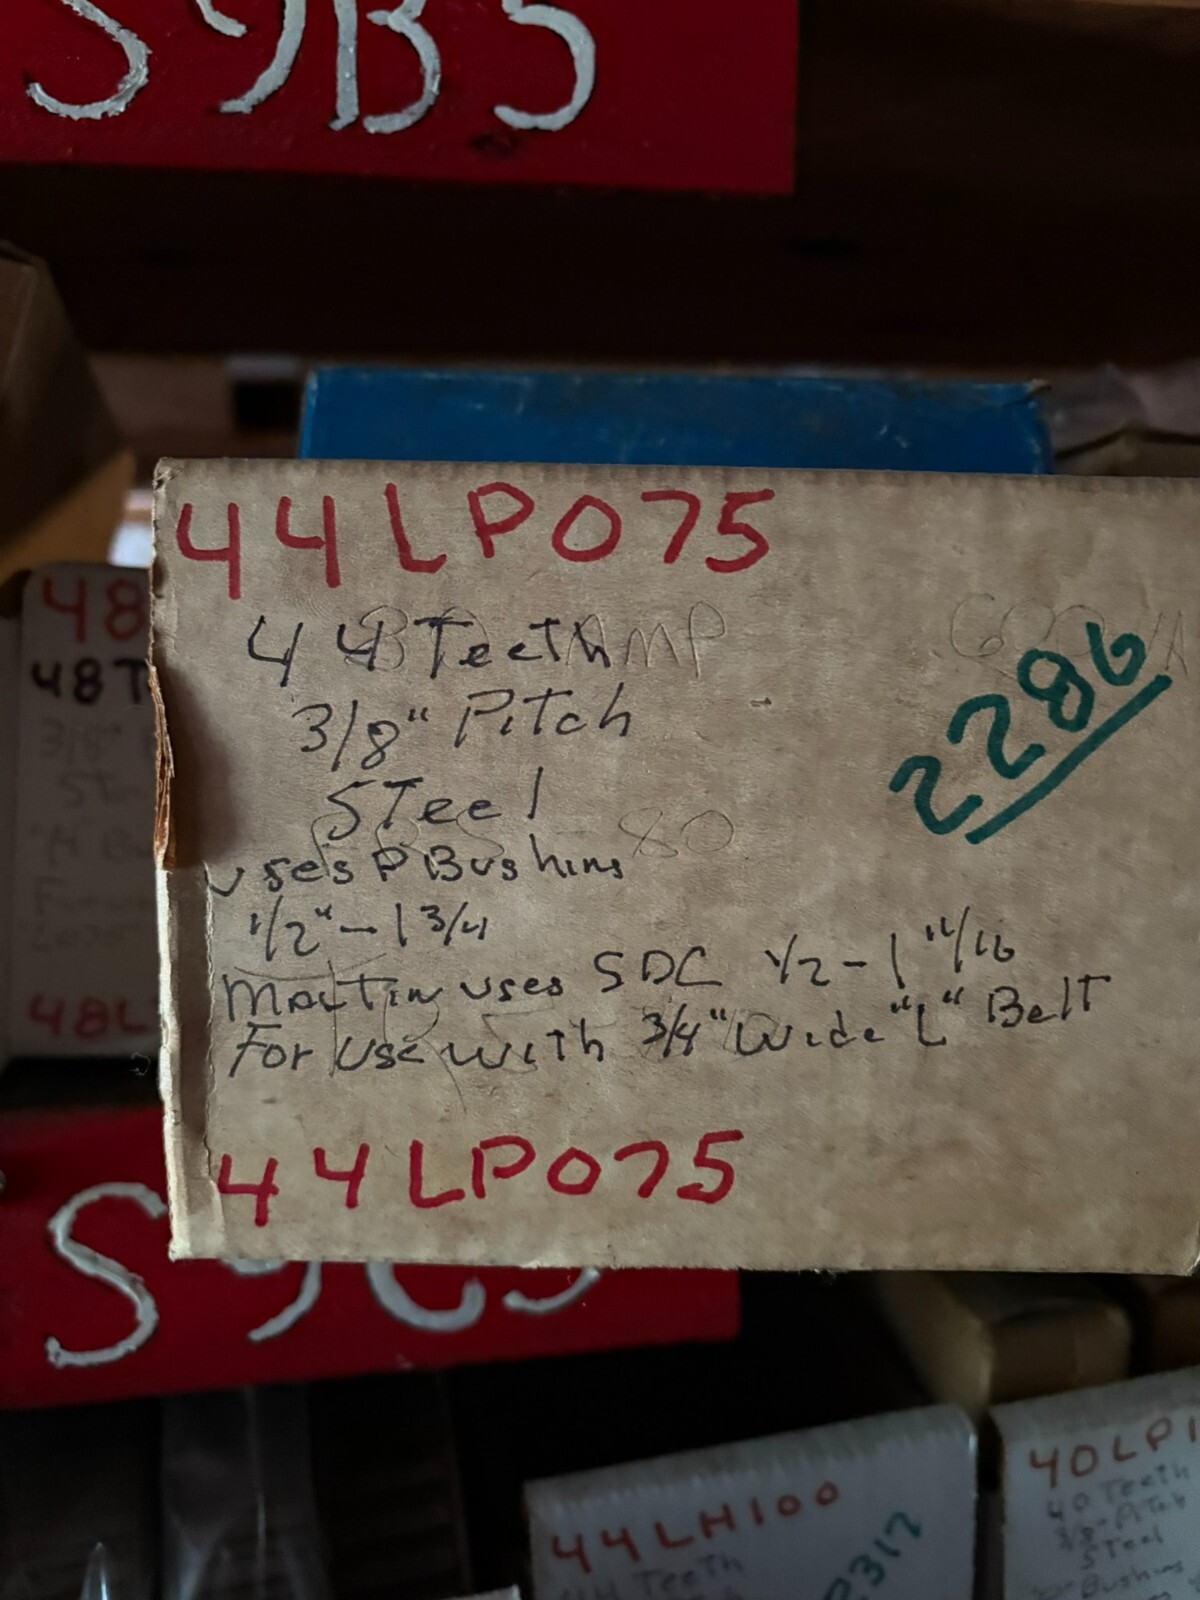 S9B5
44LP075
44 Teeth
3/8" Pitch
STeel
2286
uses P Bushins
1/2" - 1 3/4
Martin uses SDC 1/2 - 1 11/16
For use with 3/4" Wide "L" Belt
44LP075
48
48T
3/8"
48L
S9C5
44LH100
44 Teeth
2312
40LP1
40 Teeth
3/8 Pitch
STeel
Bushins